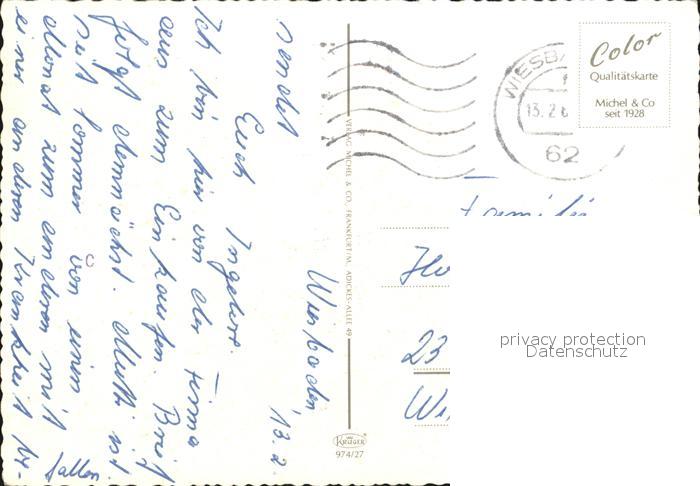 Wiesbaden 13.2.
sendet
Euch Ingeborg.
Ich bin hier von der Firma
aus zum Einkaufen. Brief
folgt demnächst. Mutti ist
seit Sommer von einem
Monat zum anderen mit
einer anderen Krankheit
fallen
VERLAG MICHEL & CO., FRANKFURT/M., ADICKES-ALLEE 49
KRÜGER
974/27
WIESBA
13.2.6
62
Color
Qualitätskarte
Michel & Co
seit 1928
Familie
23
Wi
privacy protection
Datenschutz
C